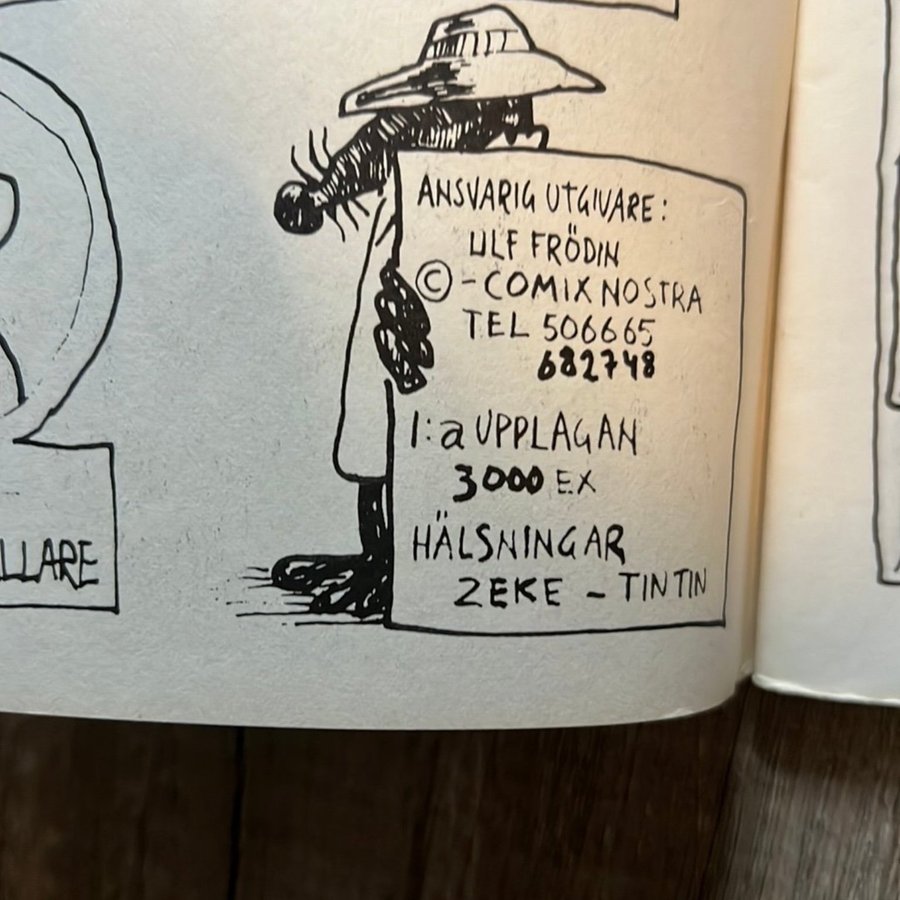 ANSVARIG UTGIVARE:
ULF FRÖDIN
© - COMIX NOSTRA
TEL 506665
682748
1:a UPPLAGAN
3000 EX
HÄLSNINGAR
ZEKE - TINTIN
LLARE